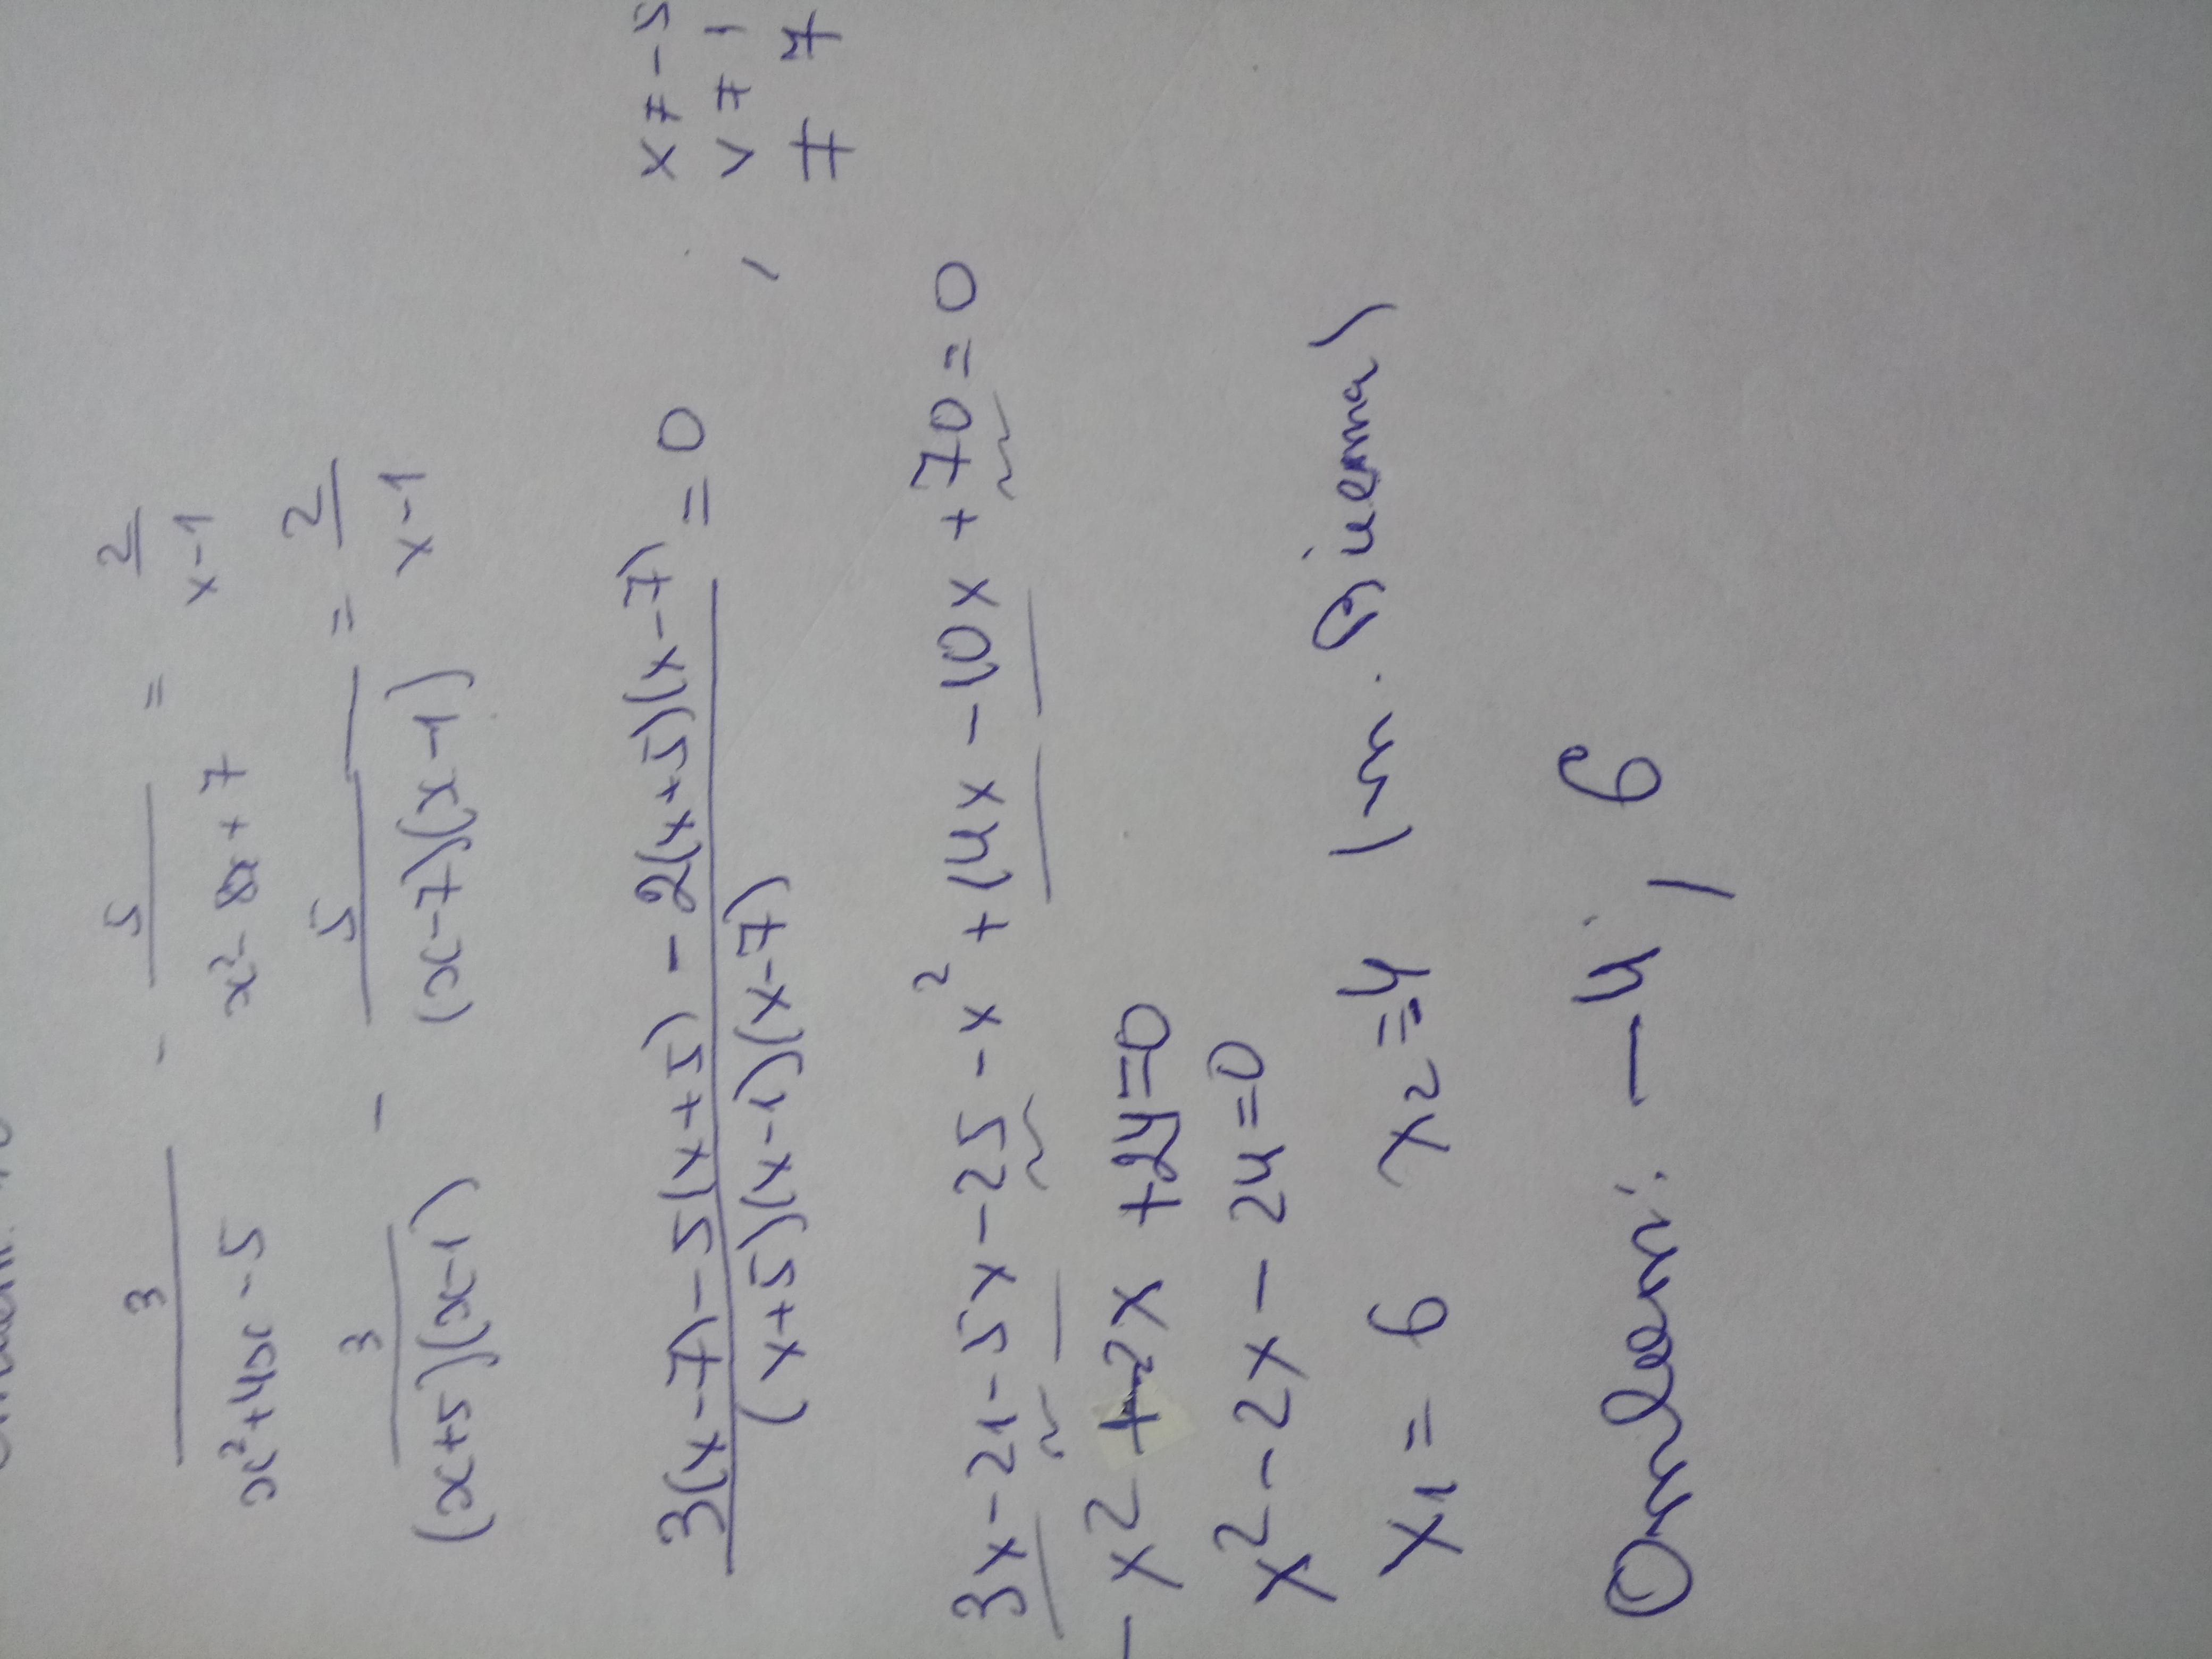 3/(x²+4x-5) - 5/(x²-8x+7) = 2/(x-1)
3/((x+5)(x-1)) - 5/((x-7)(x-1)) = 2/(x-1)
(3(x-7)-5(x+5)-2(x+5)(x-7))/((x+5)(x-1)(x-7)) = 0, x≠-5
x≠1
≠7
3x-21-5x-25-x²+14x-10x+70=0
-x²+2x+24=0
x²-2x-24=0
x1=6 x2=4 (т. Виета)
Ответ: -4; 6